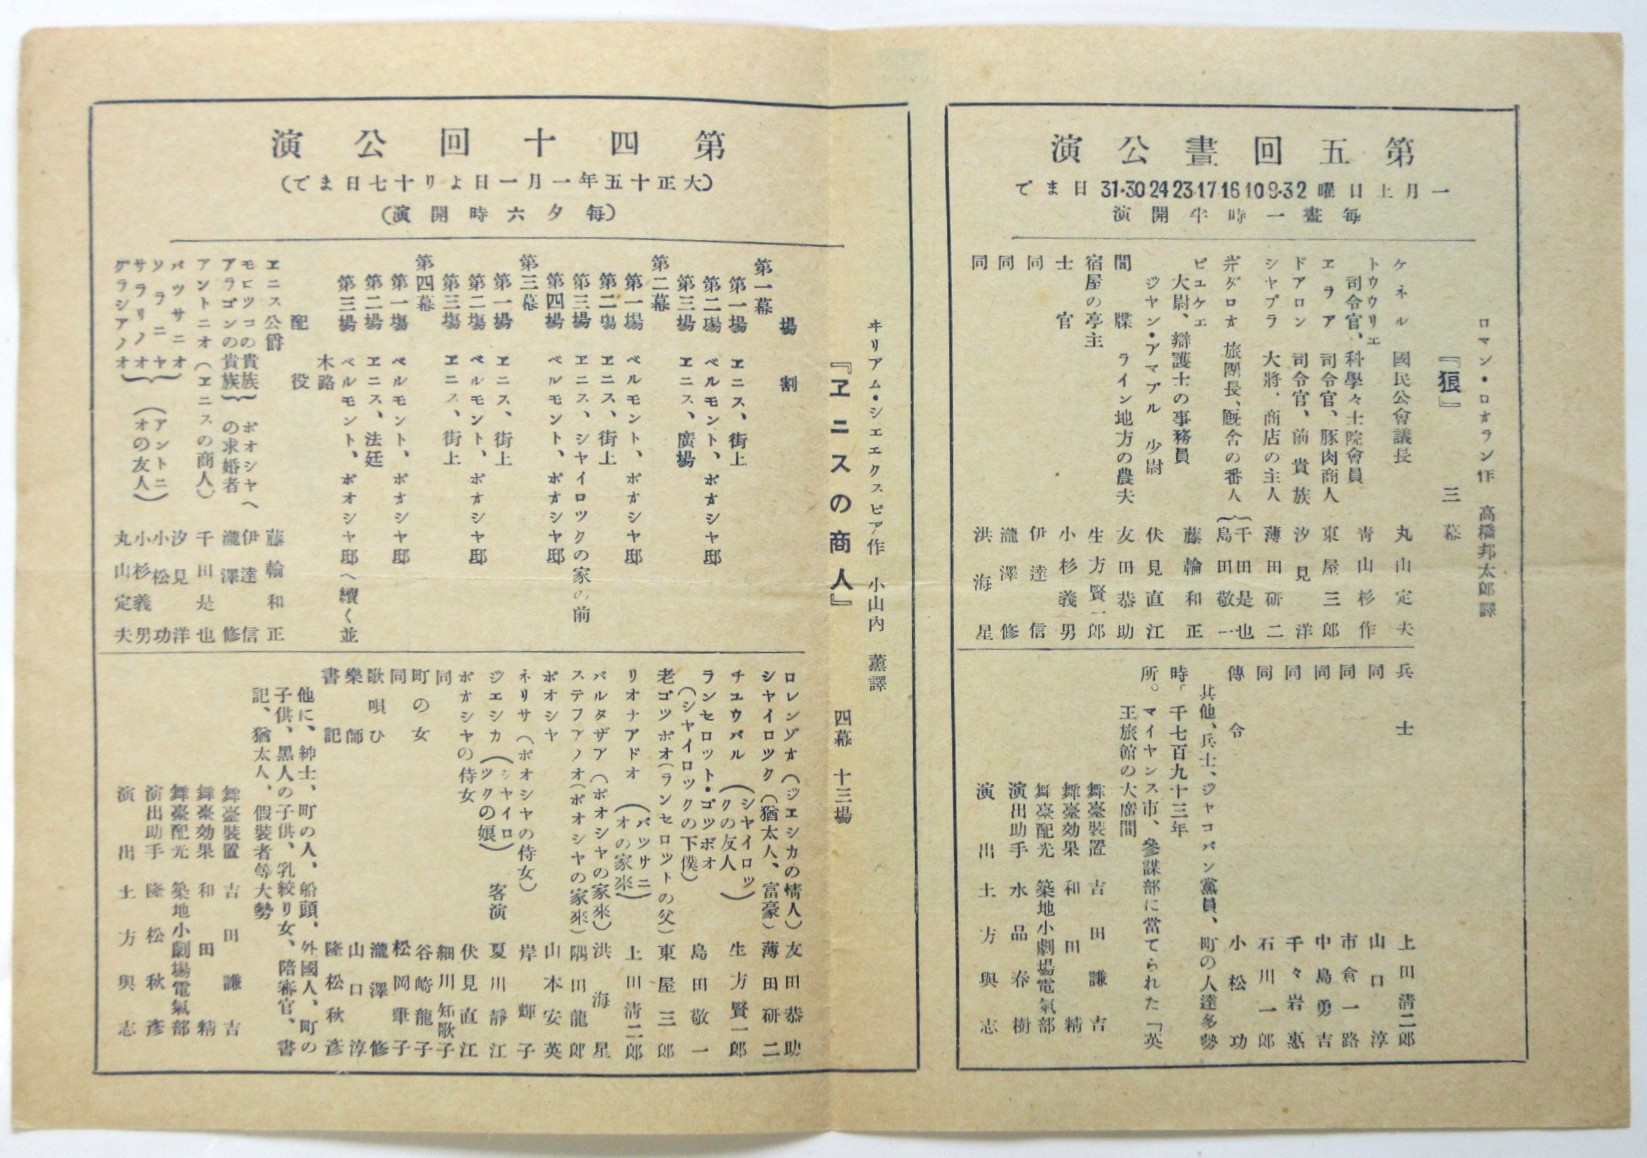 第五回晝公演
一月土日曜 2 3·9 10 16 17·23 24 30·31 日まで
毎晝一時半開演
ロマン・ロオラン作 高橋邦太郎譯
『狼』 三幕
ケネル 國民公會議長 丸山定夫
トウウリエ 司令官、科學々士院會員 青山杉作
ヱラア 司令官、豚肉商人 東屋三郎
ドアロン 司令官、前貴族 汐見洋
シャプラ 大將、商店の主人 薄田研二
ヰゲロオ 旅團長、厩舎の番人 千田是也 島田敬一
ビュケエ 大尉、辯護士の事務員 藤輪和正
ジャン・アマブル 少尉 伏見直江
間牒 ライン地方の農夫 友田恭助
宿屋の亭主 生方賢一郎
士官 小杉義男
同 伊達信
同 瀧澤修
同 洪海星
兵士 上田清二郎
同 山口淳
同 市倉一路
同 中島勇吉
同 千々岩惠
同 石川一郎
傳令 小松功
其他、兵士、ジャコバン黨員、町の人達多勢
時。千七百九十三年
所。マイヤンス市、參謀部に當てられた「英
王旅館の大廣間
舞臺裝置 吉田謙吉
舞臺効果 和田精
舞臺配光 築地小劇場電氣部
演出助手 水品春樹
演出 土方與志
第四十回公演
(大正十五年一月一日より十七日まで)
(毎夕六時開演)
ヰリアム・シエエクスピア作 小山内薫譯
『ヱニスの商人』 四幕 十三場
場割
第一幕
第一場 ヱニス、街上
第二場 ベルモント、ポオシャ邸
第三場 ヱニス、廣場
第二幕
第一場 ベルモント、ポオシャ邸
第二場 ヱニス、街上
第三場 ヱニス、シャイロックの家の前
第四場 ベルモント、ポオシャ邸
第三幕
第一場 ヱニス、街上
第二場 ベルモント、ポオシャ邸
第三場 ヱニス、街上
第四幕
第一場 ベルモント、ポオシャ邸
第二場 ヱニス、法廷
第三場 ベルモント、ポオシャ邸へ續く並
木路
配役
ヱニス公爵 藤輪和正
モロツコの貴族 ポオシヤへ 伊達信
アラゴンの貴族 の求婚者 瀧澤修
アントニオ(ヱニスの商人) 千田是也
バツサニオ 汐見洋
ソラニヤ (アントニ 小松功
サラリノオ オの友人) 小杉義男
グラシアノオ 丸山定夫
ロレンゾオ(ジエシカの情人) 友田恭助
シャイロツク(猶太人、富豪) 薄田研二
チユウバル(シャイロツクの友人) 生方賢一郎
ランセロット・ゴツボオ
(シャイロックの下僕) 島田敬一
老ゴツボオ(ランセロツトの父) 東屋三郎
リオナアドオ(バツサニオの家來) 上田清二郎
バルタザア(ポオシヤの家來) 洪海星
ステフアノオ(ポオシヤの家來) 隅田龍郎
ポオシヤ 山本安英
ネリサ(ポオシヤの侍女) 岸輝子
ジエシカ(シャイロツクの娘) 客演 夏川靜江
ポオシヤの侍女 伏見直江
同 細川知歌子
町の女 谷崎龍子
同 松岡肇子
歌唄ひ 瀧澤修
樂師 山口淳
書記 隆松秋彥
他に、紳士、町の人、船頭、外國人、町の
子供、黒人の子供、乳絞り女、陪審官、書
記、猶太人、假裝者等大勢
舞臺裝置 吉田謙吉
舞臺効果 和田精
舞臺配光 築地小劇場電氣部
演出助手 隆松秋彥
演出 土方與志